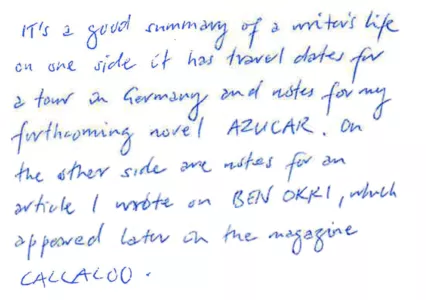 IT's a good summary of a writer's life
on one side it has travel dates for
a tour in Germany and notes for my
forthcoming novel AZUCAR. On
the other side are notes for an
article I wrote on BEN OKRI, which
appeared later in the magazine
CALLALOO.